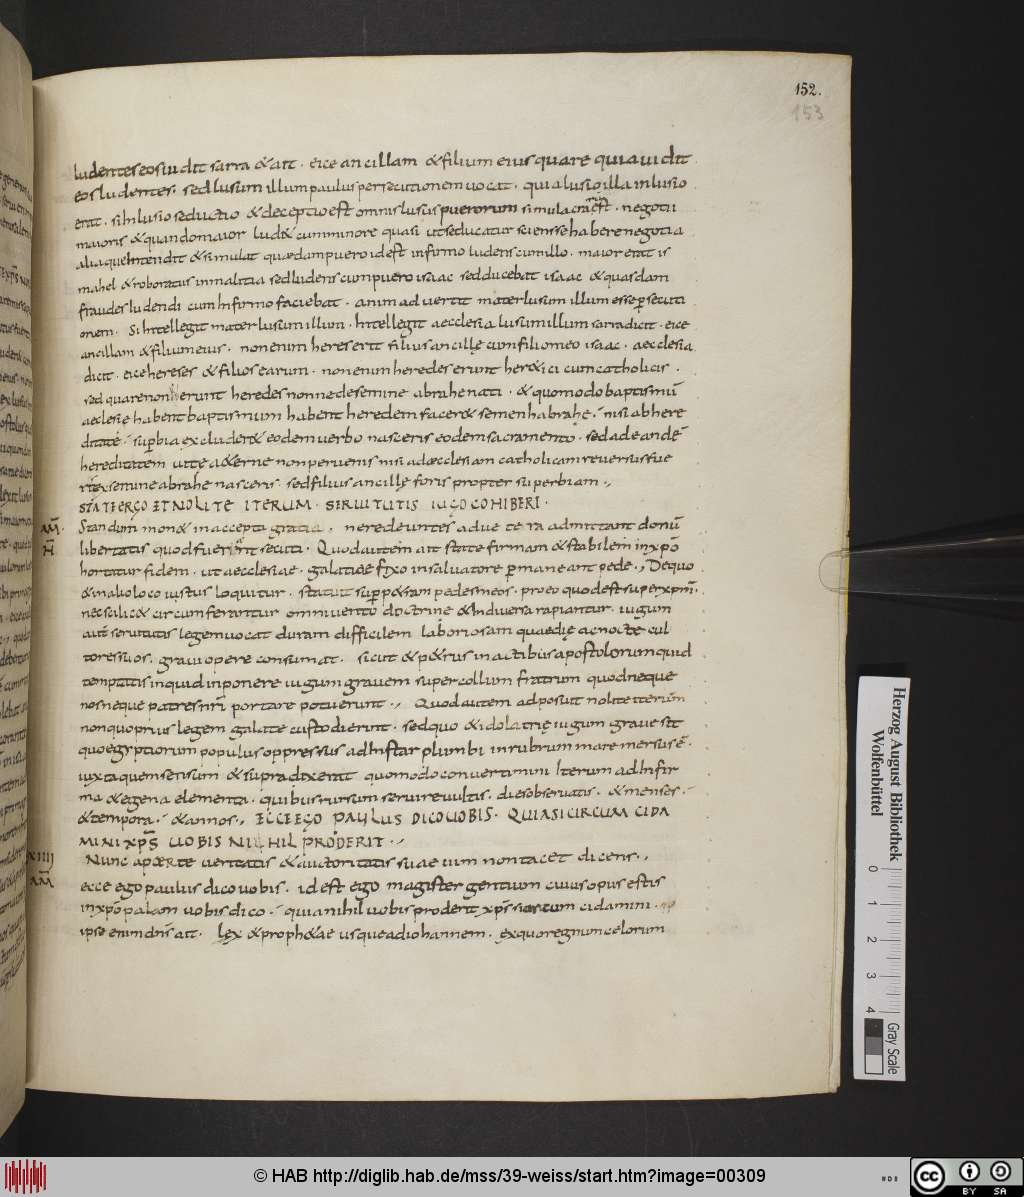 152.
153
ludentes eos uidit sarra & ait . eice ancillam & filium eius quare quia uidit
eos ludentes . sed lusum illum paulus persecutionem uocat . quia lusio illa inlusio
erat . si inlusio seductio & deceptio est omnis lusus puerorum simulacra est . negotii
maioris & quando maior lud& cum minore quasi ut seducatur sciens se habere negotia
alia que intendit & simulat quædam puero id est infirmo ludens cum illo . maior erat is
mahel & roboratus in malitia sed ludens cum puero isaac sed ducebat isaac & quasdam
fraudes ludendi cum infirmo faciebat . animaduertit mater lusum illum esse persecuti
onem . Si intellegit mater lusum illum . intellegit aecclesia lusum illum sarra dicit . eice
ancillam & filium eius . non enim heres erit filius ancillę cum filio meo isaac . aecclesia
dicit . eice hereses & filios earum . non enim heredes erunt her&ici cum catholicis .
sed quare non erunt heredes nonne de semine abrahe nati . & quomodo baptismū
aeclesie habent baptismum habent heredem facer& semen habrahę . nisi ab here
ditate . superbia excluder& eodem uerbo nasceris eodem sacramento . sed ad eandē
hereditatem uitę a&erne non peruenis nisi ad æcclesiam catholicam reuersus fue
ris ex semine abrahe nasceris . sed filius ancillę foris propter superbiam .,
STATE ERGO ET NOLITE ITERUM . SERUITUTIS IUGO COHIBERI .
AM̄.
H̄
Standum mon& in accepta gratia . ne redeuntes ad uetera admittant donū
libertatis quod fuerant secuti . Quod autem ait state firmam & stabilem in xp̄o
hortatur fidem . ut aecclesiae . galatiae fixo in saluatore permaneant pede ., De quo
& in alio loco iustus loquitur . statuit supra p&ram pedes meos . pro eo quod est super xpm̄ .
nec scilic& circumferantur omni uento doctrine & in diuersa rapiantur . iugum
autē seruitutis legem uocat duram difficilem laboriosam quae die ac nocte cul
tores suos . graui opere consumat . sicut & p&rus in actibus apostolorum quid
temptatis inquid inponere iugum grauem super collum fratrum quod neque
nos neque patres nr̄i portare potuerunt ., Quod autem adposuit nolite iterū
non quo prius legem galate custodierint . sed quo & idolatrię iugum graue sit
quo egyptiorum populus oppressus ad instar plumbi in rubrum mare mersus ē .
iuxta quem sensum & supra dixerit quomodo conuertimini iterum ad infir
ma & egena elementa . quibus rursum seruire uultis . dies obseruatis . & menses .
& tempora . & annos ., ECCE EGO PAULUS DICO UOBIS . QUIA SI CIRCUMCIDA
MINI XPS̄ UOBIS NIHIL PRODERIT .,
XIIII
AM̄
Nunc ap&rte ueritatis & auctoritatis suae uim non tacet dicens .,
ecce ego paulus dico uobis . id est ego magister gentium cuius opus estis
in xp̄o palam uobis dico . quia nihil uobis proderit xps̄ si circumcidamini .
ipse enim dn̄s ait . lex & proph&ae usque ad iohannem . ex quo regnum celorum
Herzog August Bibliothek
Wolfenbüttel
0 1 2 3 4
Gray Scale
© HAB http://diglib.hab.de/mss/39-weiss/start.htm?image=00309
cc BY SA